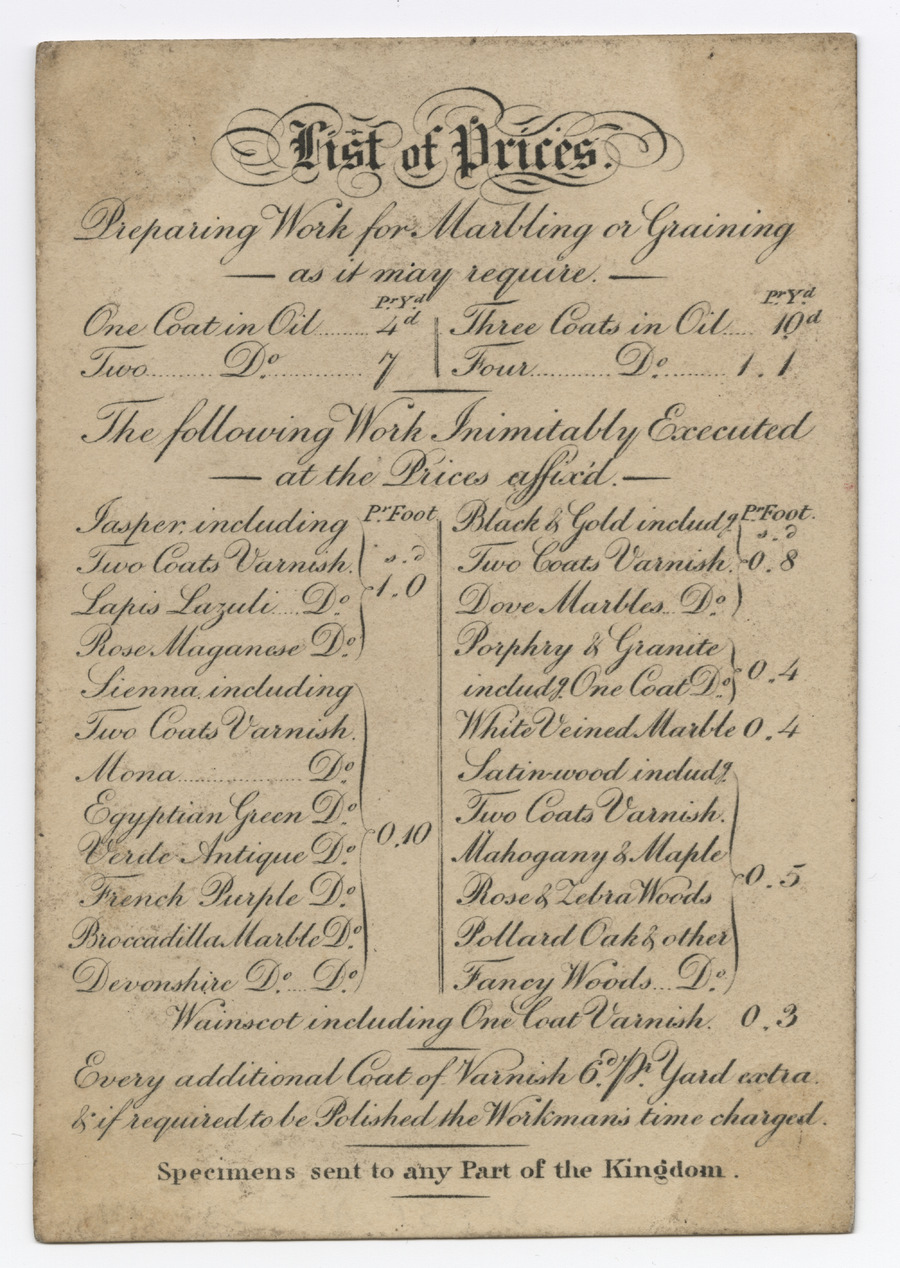 List of Prices.
Preparing Work for Marbling or Graining
— as it may require. —
Pr Yd
One Coat in Oil ...... 4d
Two ......... Do ............ 7
Pr Yd
Three Coats in Oil .... 10d
Four .......... Do ....... 1 . 1
The following Work Inimitably Executed
— at the Prices affix'd. —
Pr Foot
Jasper, including
s. d
Two Coats Varnish.
1 . 0
Lapis Lazuli .... Do
Rose Maganese Do
Sienna, including
Two Coats Varnish.
Mona .............. Do
Egyptian Green Do
0 . 10
Verde Antique Do
French Purple Do
Broccadilla Marble Do
Devonshire Do .... Do
Pr Foot.
Black & Gold includg
s. d
Two Coats Varnish. 0 . 8
Dove Marbles .. Do
Porphry & Granite
0 . 4
includg One Coat Do
White Veined Marble 0 . 4
Satin-wood includg
Two Coats Varnish.
Mahogany & Maple
0 . 5
Rose & Zebra Woods
Pollard Oak & other
Fancy Woods ... Do
Wainscot including One Coat Varnish. 0 . 3
Every additional Coat of Varnish 6d. Pr Yard extra.
& if required to be Polished the Workman's time charged.
Specimens sent to any Part of the Kingdom.